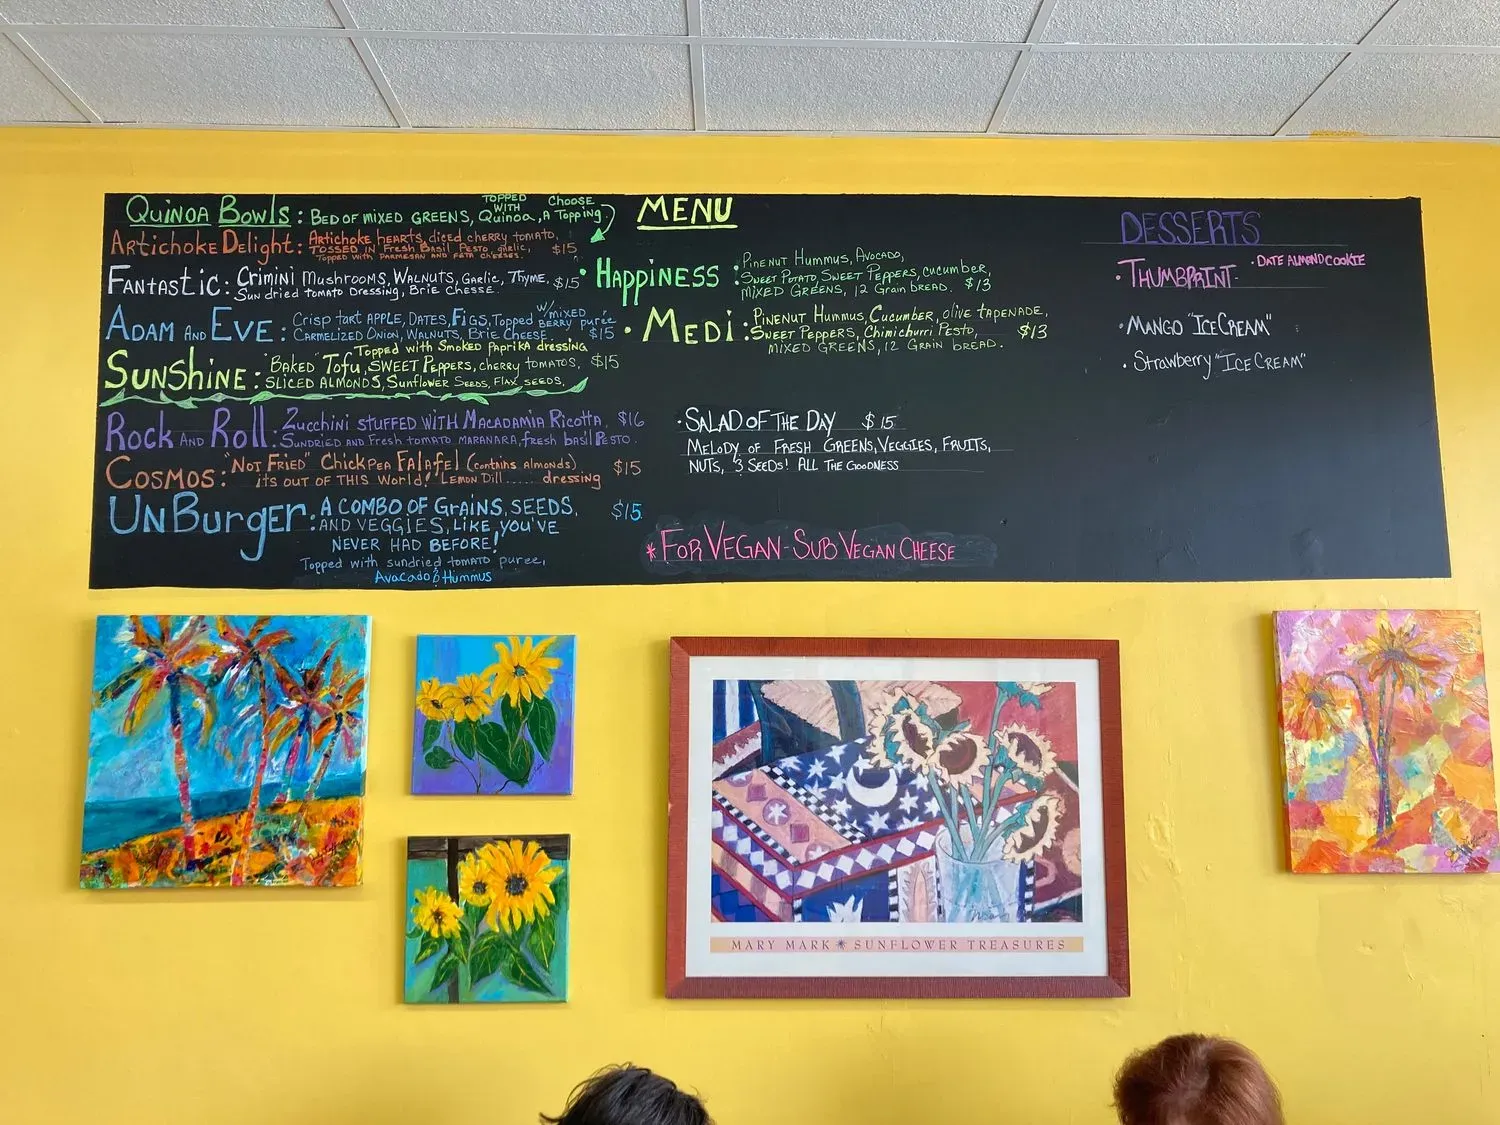 QUINOA BOWLS: BED OF MIXED GREENS, Quinoa, A Topping
TOPPED WITH
CHOOSE
ARTICHOKE DELIGHT: ARTICHOKE HEARTS, diced cherry tomato,
TOSSED IN Fresh Basil Pesto, garlic, $15
Topped with PARMESAN AND FETA CHEESES.
FANTASTIC: CRIMINI MUSHROOMS, WALNUTS, GARLIC, THYME, $15
Sun dried tomato Dressing, Brie Chesse.
ADAM AND EVE: CRISP TART APPLE, DATES, FIGS, Topped w/mixed BERRY purée
CARMELIZED ONION, WALNUTS, BRIE CHEESE $15
Topped with Smoked Paprika dressing
SUNSHINE: "BAKED" Tofu, SWEET PEPPERS, cherry tomatos, $15
SLICED ALMONDS, Sunflower Seeds, FLAX SEEDS.
ROCK AND ROLL: Zucchini STUFFED WITH MACADAMIA RICOTTA, $16
SUNDRIED AND Fresh tomato MARANARA, fresh basil PESTO.
COSMOS: "NOT FRIED" CHICKPEA FALAFEL (contains almonds) $15
its OUT OF THIS World! Lemon Dill ...... dressing
UNBURGER: A COMBO OF GRAINS, SEEDS, $15
AND VEGGIES, LIKE YOU'VE
NEVER HAD BEFORE!
Topped with sundried tomato puree,
Avocado & Hummus
MENU
• HAPPINESS: PINENUT HUMMUS, AVOCADO,
SWEET POTATO, SWEET PEPPERS, CUCUMBER,
MIXED GREENS, 12 Grain BREAD. $13
• MEDI: PINENUT HUMMUS, CUCUMBER, OLIVE TAPENADE,
SWEET PEPPERS, Chimichurri Pesto, $13
MIXED GREENS, 12 GRAIN BREAD.
• SALAD OF THE DAY $15
MELODY OF FRESH GREENS, VEGGIES, FRUITS,
NUTS, 3 SEEDS! ALL THE GOODNESS
* FOR VEGAN - SUB VEGAN CHEESE
DESSERTS
• THUMBPRINT • DATE ALMOND COOKIE
• MANGO "ICE CREAM"
• Strawberry "ICE CREAM"
MARY MARK ✷ SUNFLOWER TREASURES